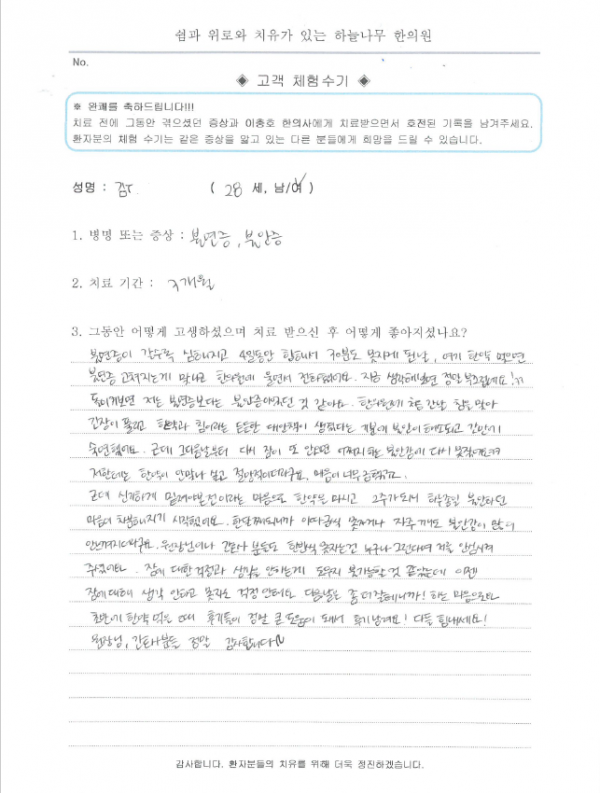 쉼과 위로와 치유가 있는 하늘나무 한의원
No.
◈ 고객 체험수기 ◈
※ 완쾌를 축하드립니다!!!
치료 전에 그동안 겪으셨던 증상과 이종호 한의사에게 치료받으면서 호전된 기록을 남겨주세요.
환자분의 체험 수기는 같은 증상을 앓고 있는 다른 분들에게 희망을 드릴 수 있습니다.
성명 : 김 ( 28 세, 남/여 )
1. 병명 또는 증상 : 불면증, 불안증
2. 치료 기간 : 개월
3. 그동안 어떻게 고생하셨으며 치료 받으신 후 어떻게 좋아지셨나요?
불면증이 갈수록 심해지고 4일동안 합해서 못자게 된날, 여기 한약 먹으면
불면증 고쳐지는게 맞냐고 울면서 전화했어요. 지금 생각해보면 정말 부끄럽네요!
돌이켜보면 저는 불면증보다는 불안증이었던 것 같아요. 한의원에서 처음 상담 침을 맞아
긴장이 풀리고 한약과 침이라는 든든한 대안책이 생겼다는 기분에 불안이 해소되고
숙면했어요. 근데 그다음날부터 다시 잠이 또 안오면 어쩌지 하는 불안감에 다시 못잤어요
저한테는 한약이 안맞나 싶고 절망적이더라구요. 마음이 너무 급해서.
근데 신기하게 믿져야 본전이라는 마음으로 한약은 마시고 2주가 되서 하루종일 불안하던
마음이 차분해지기 시작했어요. 한달째되니까 이따금씩 못자거나 자주 깨도 불안감이 많이
안느껴지더라구요. 원장님이나 간호사 분들도 한번씩 못자는건 누구나 그런다며 저를 안심시켜
주셨어요. 잠에 대한 걱정과 생각을 안하는게 도무지 불가능할 것 같았는데 이젠
잠에 대해 생각 안하고 못자도 걱정 안해요 다음날은 좀 더 잘테니까! 하는 마음으로
초반에 한약 먹을 때 후기들이 정말 큰 도움이 돼서 후기 남겨요! 다들 힘내세요!
원장님, 간호사분들 정말 감사합니다~
감사합니다. 환자분들의 치유를 위해 더욱 정진하겠습니다.